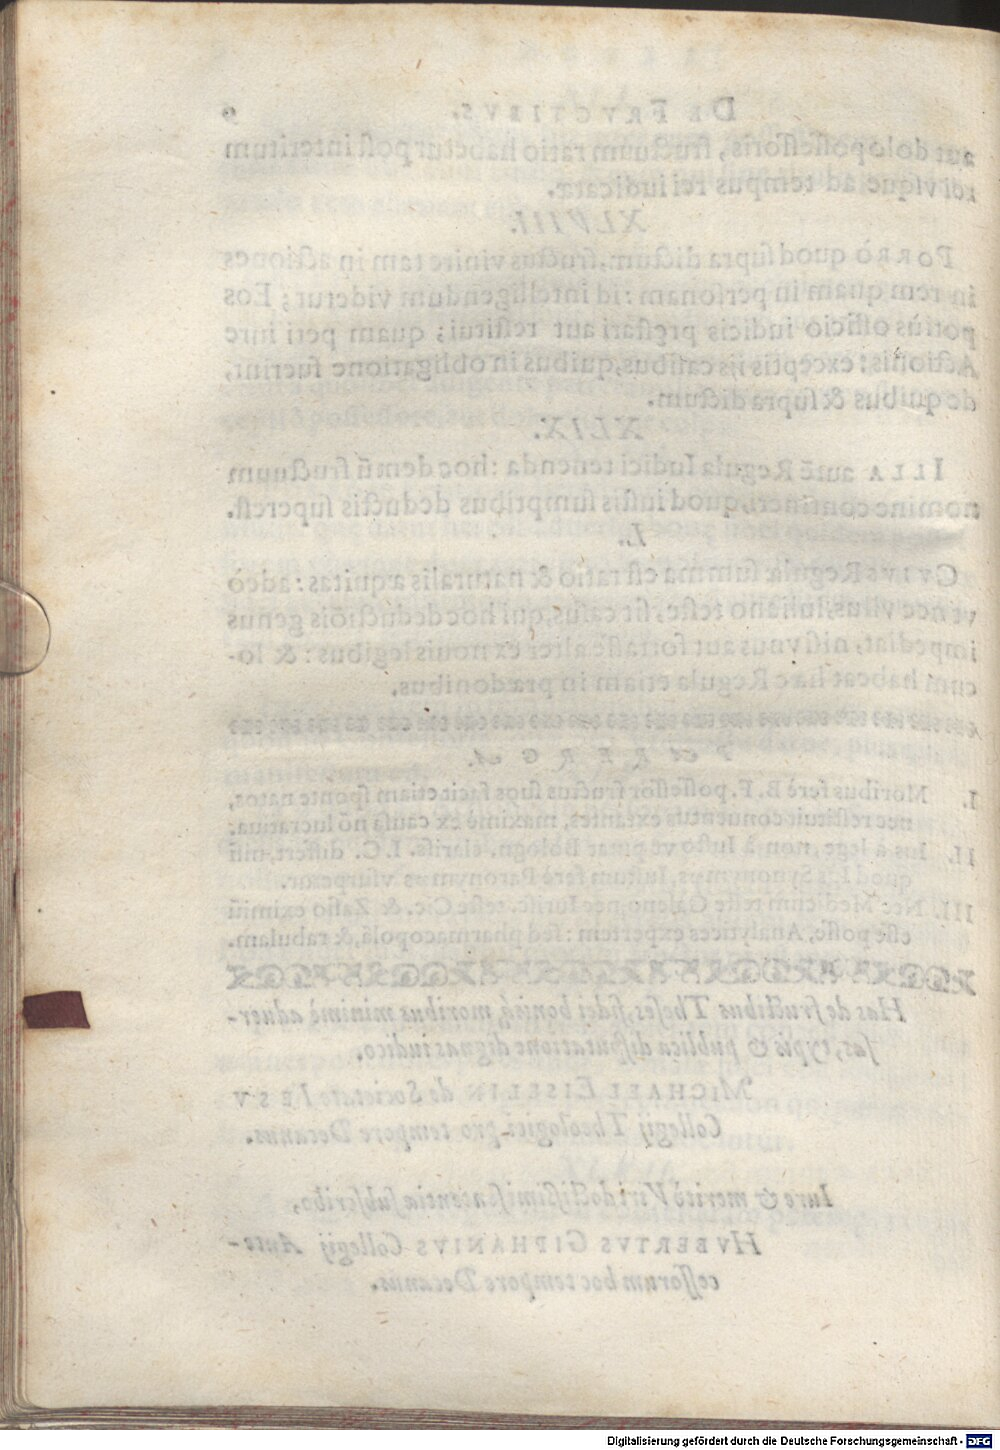 DE FRVCTIBVS. 9
aut dolo possessoris, fructuum ratio habetur post interitum
rei vsque ad tempus rei iudicatæ.
XLVIII.
PORRÒ quod supra dictum, fructus venire tam in actiones
in rem quam in personam: id intelligendum videtur; Eos
potiùs officio iudicis præstari aut restitui; quam peti iure
Actionis: exceptis ijs casibus, quibus in obligatione fuerint,
de quibus & supra dictum.
XLIX.
ILLA autē Regula Iudici tenenda: hoc demū fructuum
nomine contineri, quod iustis sumptibus deductis superest.
L.
CVIVS Regulæ summa est ratio & naturalis æquitas: adeò
vt nec vllus, Iuliano teste, sit casus, qui hoc deductiōis genus
impediat, nisi vnus aut fortasse alter ex nouis legibus: & lo-
cum habeat hæc Regula etiam in prædonibus.
PARERGA.
I. Moribus ferè B. F. possessor fructus suos facit etiam sponte natos,
nec restituit conuentus extantes, maximè ex causa nō lucratiua.
II. Ius à lege, non à Iusto vt putat Bologn. clariss. I.C. differt, nisi
quod Ius Synonymωs, Iustum ferè Paronymωs vsurpetur.
III. Nec Medicum teste Galeno, nec Iurisc. teste Cic. & Zasio eximiū
esse posse, Analytices expertem: sed pharmacopolā, & rabulam.
Has de fructibus Theses, fidei bonisq́ moribus minimè aduer-
sas, typis & publica disputatione dignas iudico.
MICHAEL EISELIN de Societate IESV
Collegij Theologici pro tempore Decanus.
Iure & meritò Viri doctissimi sententiæ subscribo,
HVBERTVS GIPHANIVS Collegij Ante-
cessorum hoc tempore Decanus.
Digitalisierung gefördert durch die Deutsche Forschungsgemeinschaft - DFG